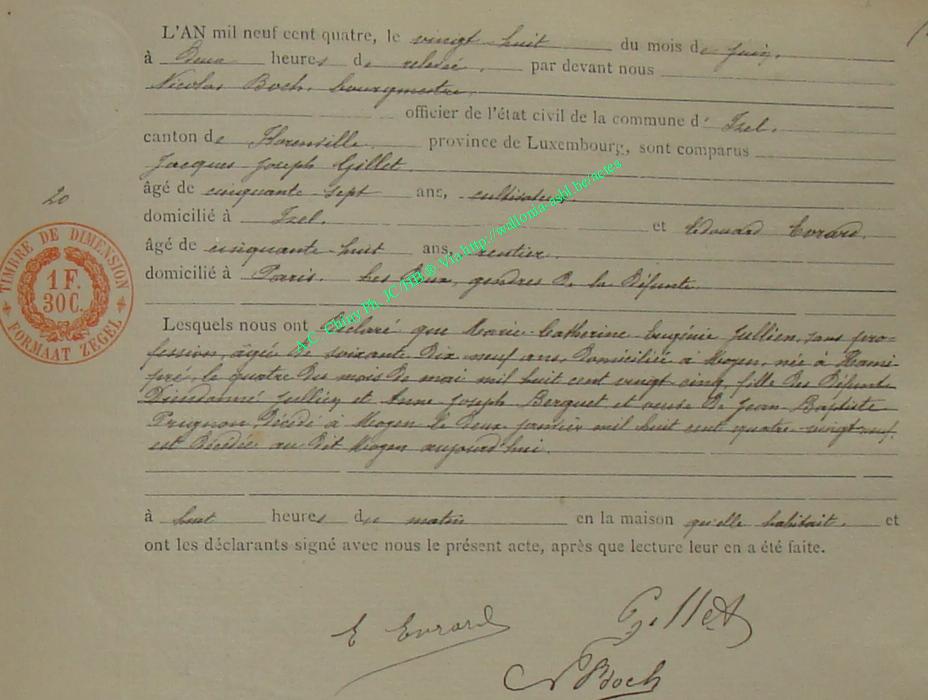 L'AN mil neuf cent quatre, le vingt huit du mois de juin,
à Deux heures de relevée, par devant nous
Nicolas Boch, bourgmestre,
officier de l'état civil de la commune d' Izel,
canton de Florenville province de Luxembourg, sont comparus
Jacques Joseph Gillet
âgé de cinquante sept ans, cultivateur,
20
domicilié à Izel. et Edouard Evrard,
âgé de cinquante huit ans, rentier,
domicilié à Paris. Les Deux, gendres De la Défunte.
TIMBRE DE DIMENSION
1 F.
30 C.
FORMAAT ZEGEL
Lesquels nous ont Déclaré que Marie Catherine Eugénie Jullien, sans pro-
fession, âgée De soixante Dix neuf ans, Domiciliée à Moyen, née à
le quatre du mois De mai mil huit cent vingt cinq, fille des Défunts
Dieudonné Jullien et Anne Joseph Berquet et veuve De Jean Baptiste
Prignon Décédé à Moyen le Deux janvier mil huit cent quatre-vingt neuf,
est Décédée au Dit Moyen aujourd'hui
à huit heures du matin en la maison qu'elle habitait, et
ont les déclarants signé avec nous le présent acte, après que lecture leur en a été faite.
E Evrard Gillet
N Boch
A.C. Chiny Ph. JC /HH ® Via http://wallonia-asbl.be/actes